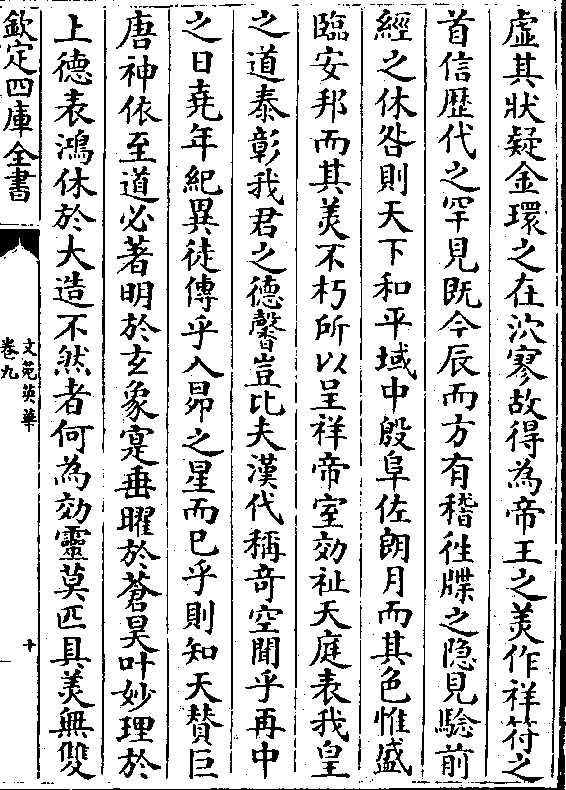 虚其狀疑金環之在泬寥故得為帝王之美作祥符之
首信歴代之罕見既今辰而方有稽徃牒之隠見驗前
經之休咎則天下和平域中殷阜佐朗月而其色惟盛
臨安邦而其美不朽所以呈祥帝室効祉天庭表我皇
之道泰彰我君之德馨豈比夫漢代稱竒空聞乎再中
之日堯年紀異徒傳乎入昴之星而已乎則知天賛巨
唐神依至道必著明於玄象寔垂曜於蒼昊叶妙理於
上德表鴻休於大造不然者何為効靈莫匹具美無雙
欽定四庫全書
文苑英華
卷九
十